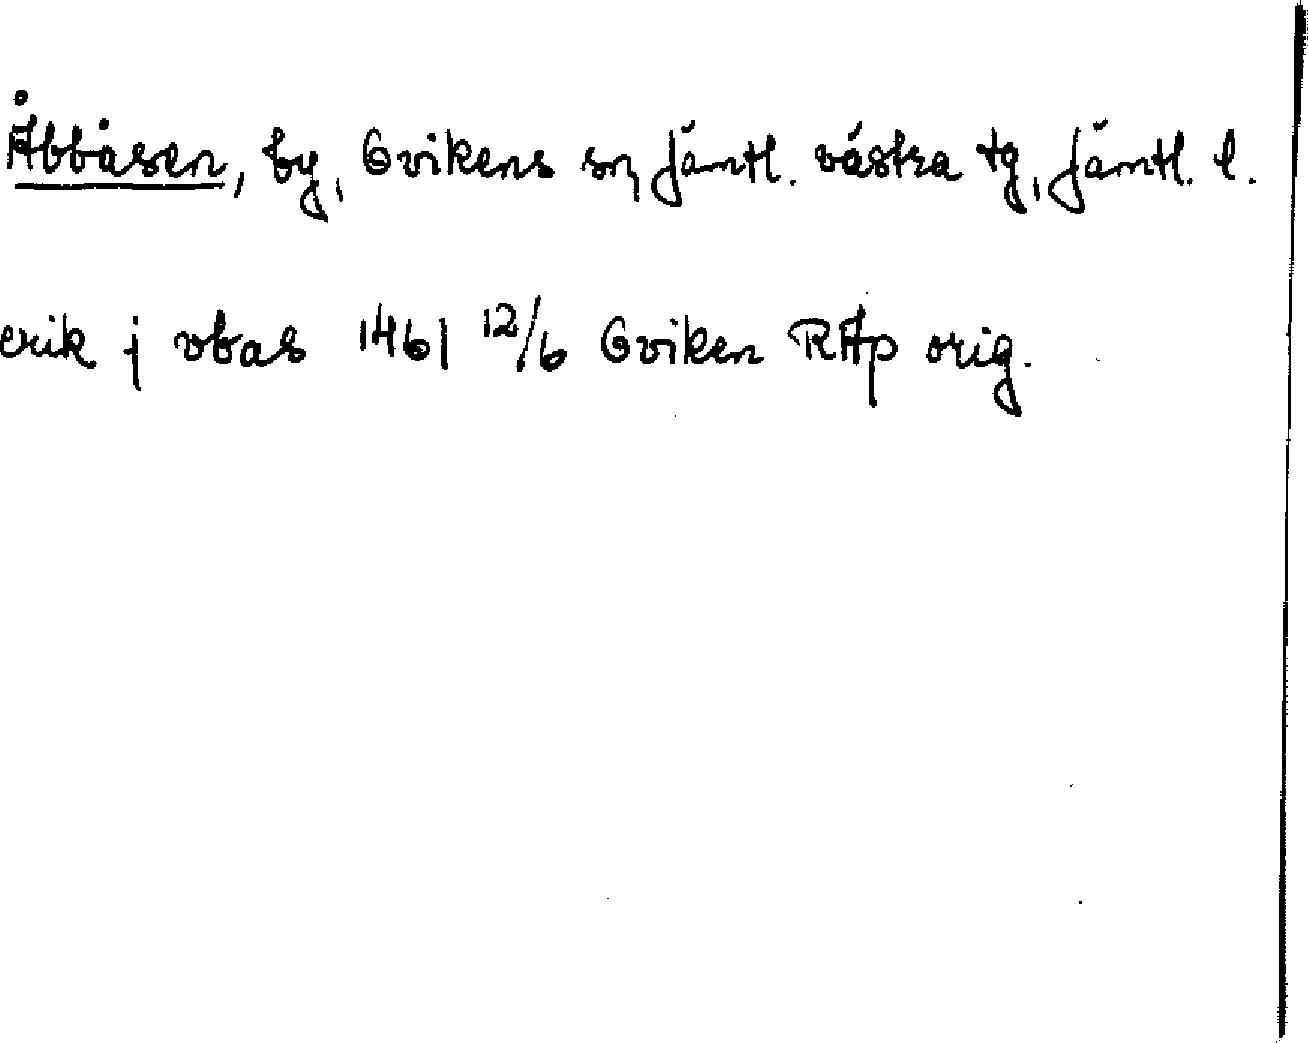 Åbbåsen, by, Ovikens sn, Jämtl. västra tg, Jämtl. l.
erik j obas 1461 12/6 Oviken RAp orig.